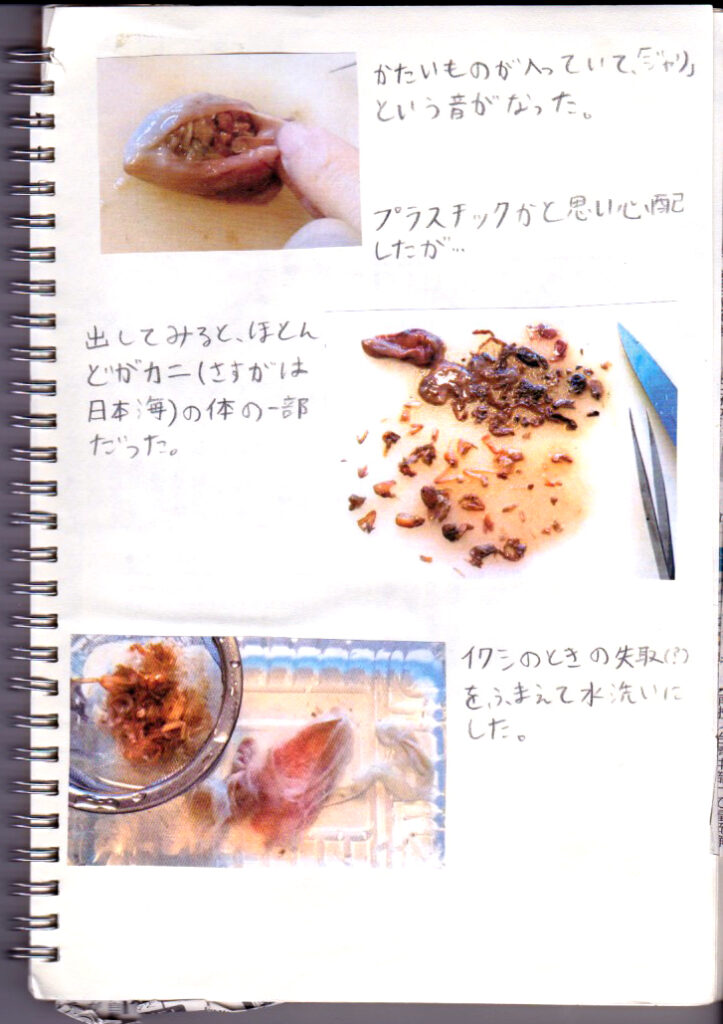 かたいものが入っていて、「ジャリ」
という音がなった。
プラスチックかと思い心配
したが…
出してみると、ほとん
どがカニ(さすがは
日本海)の体の一部
だった。
イワシのときの失取(?)
をふまえて水洗いに
した。